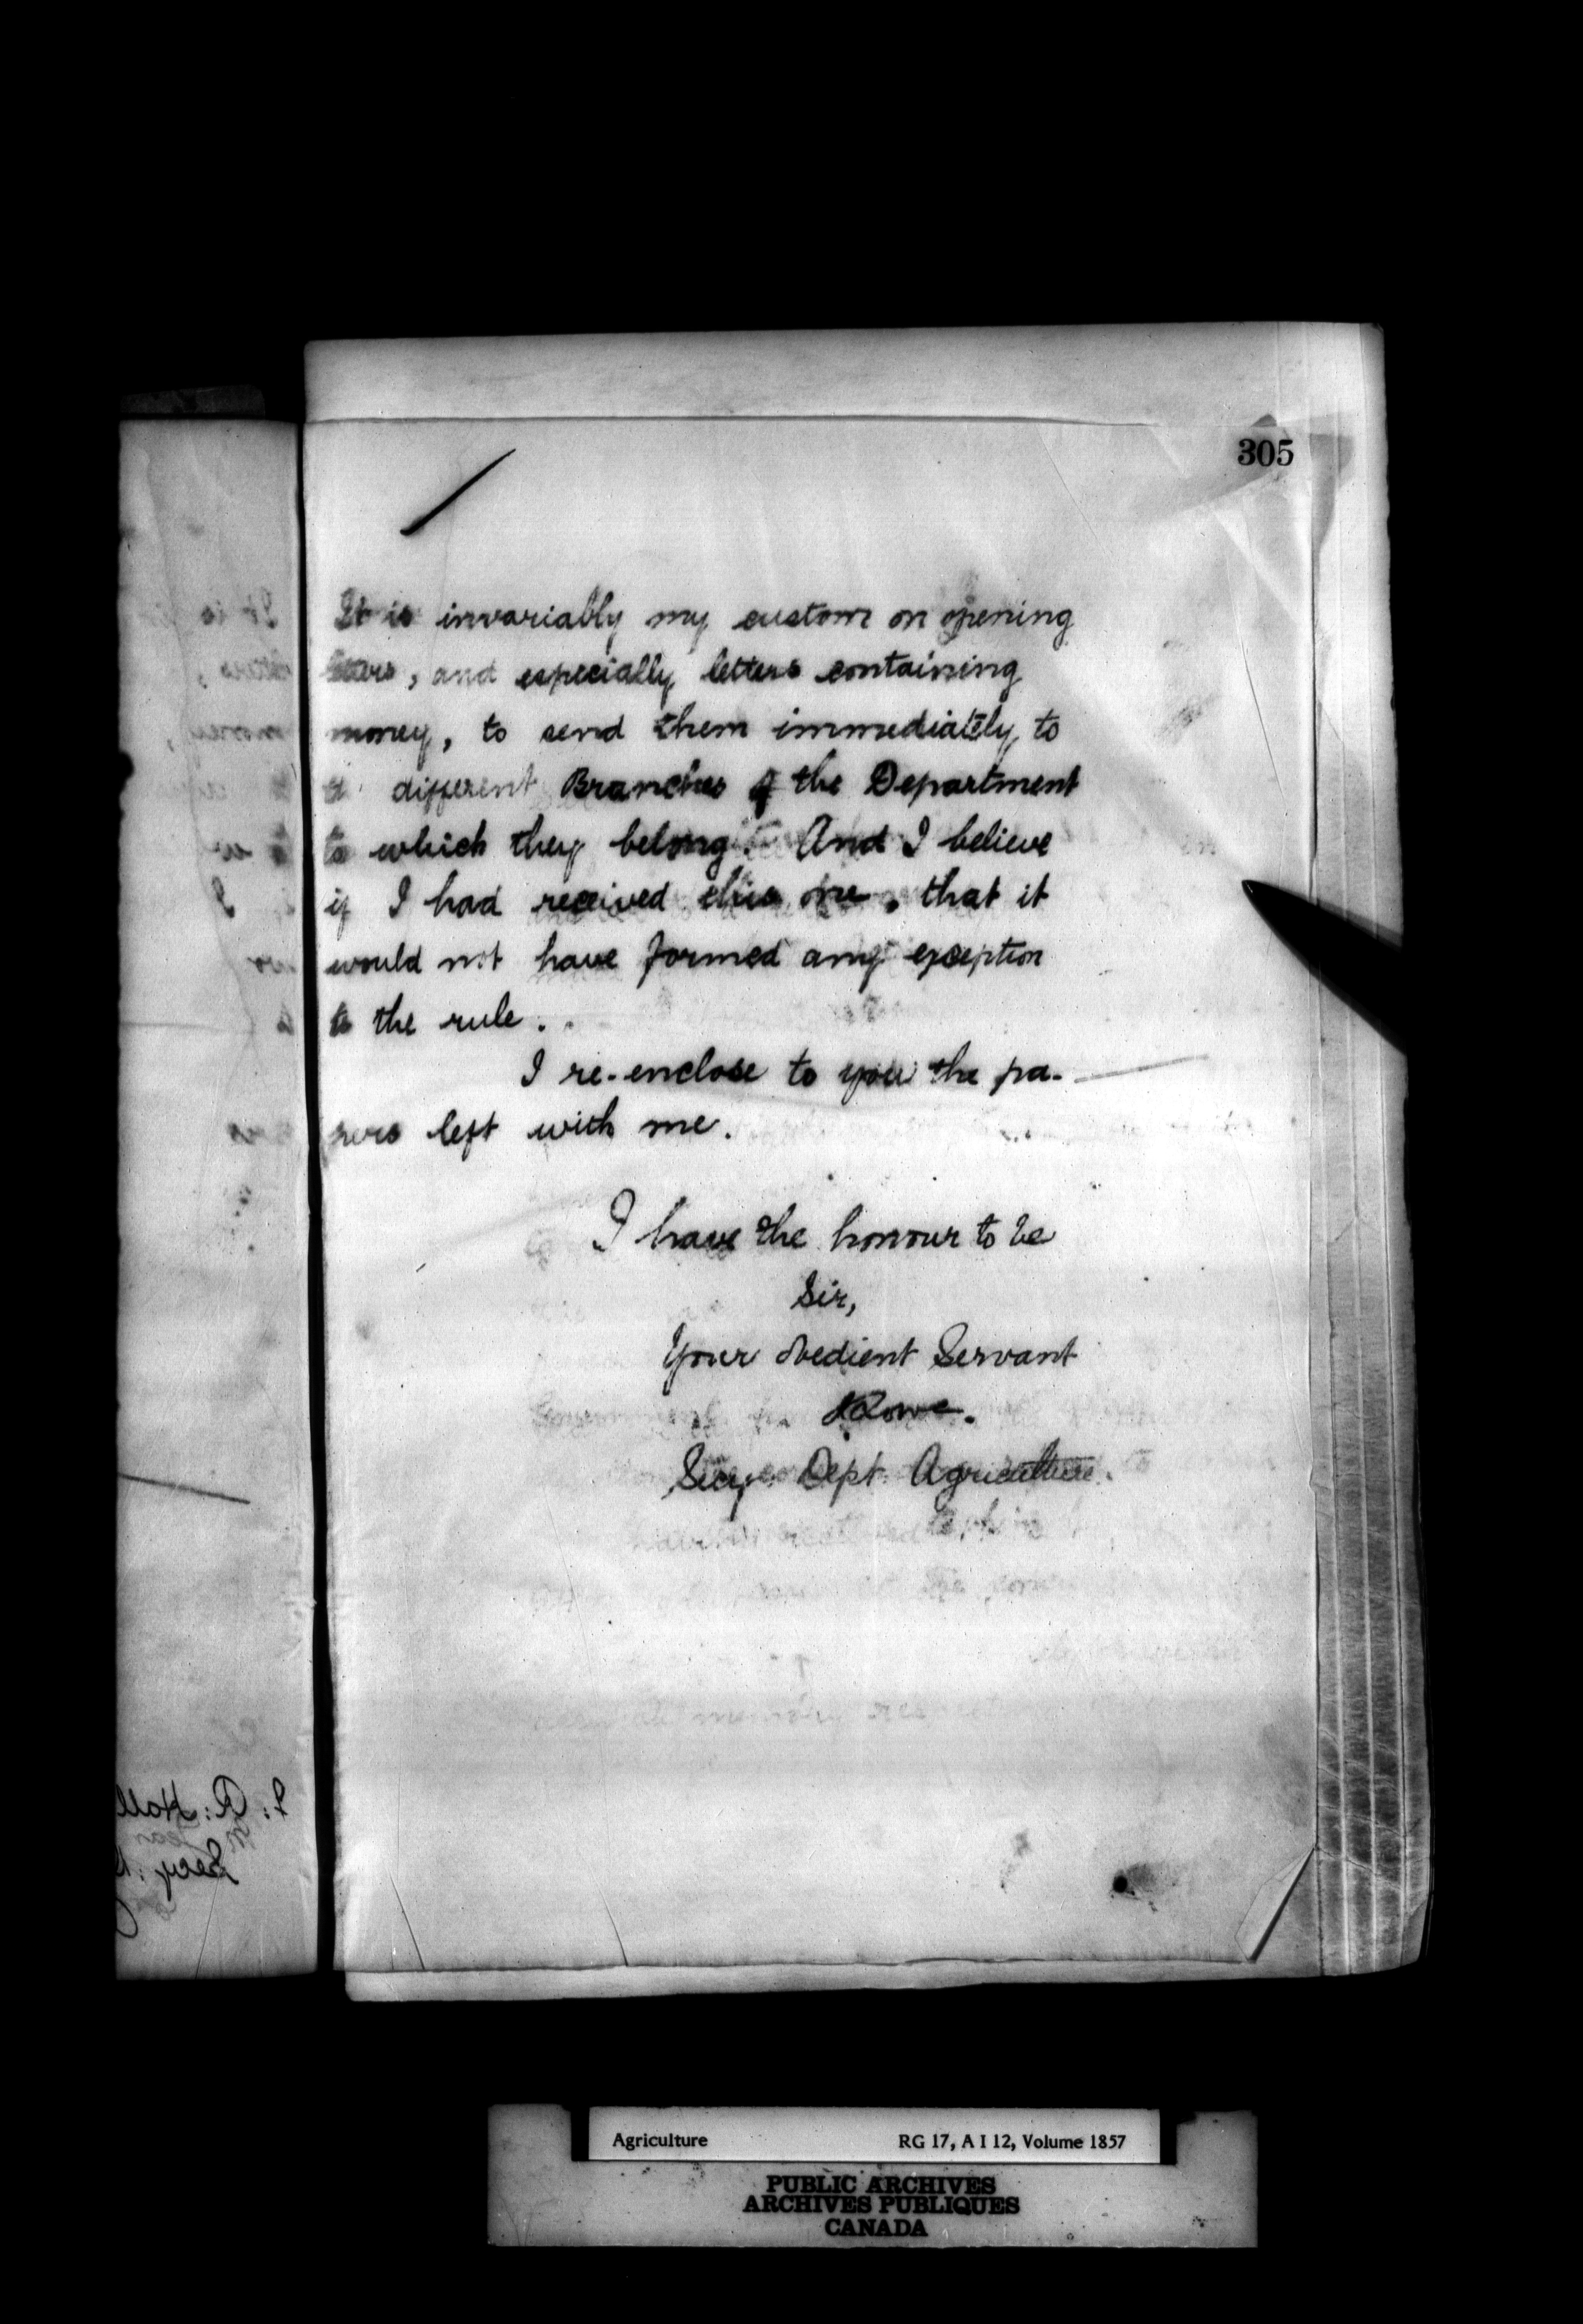 305
It is invariably my custom on opening
letters, and especially letters containing
money, to send them immediately to
different Branches of the Department
to which they belong. And I believe
if I had received this one, that it
would not have formed any exception
to the rule.
I re-enclose to you the pa-
pers left with me.
I have the honour to be
Sir,
Your obedient Servant
Secy. Dept. Agriculture.
Agriculture RG 17, A I 12, Volume 1857
PUBLIC ARCHIVES
ARCHIVES PUBLIQUES
CANADA